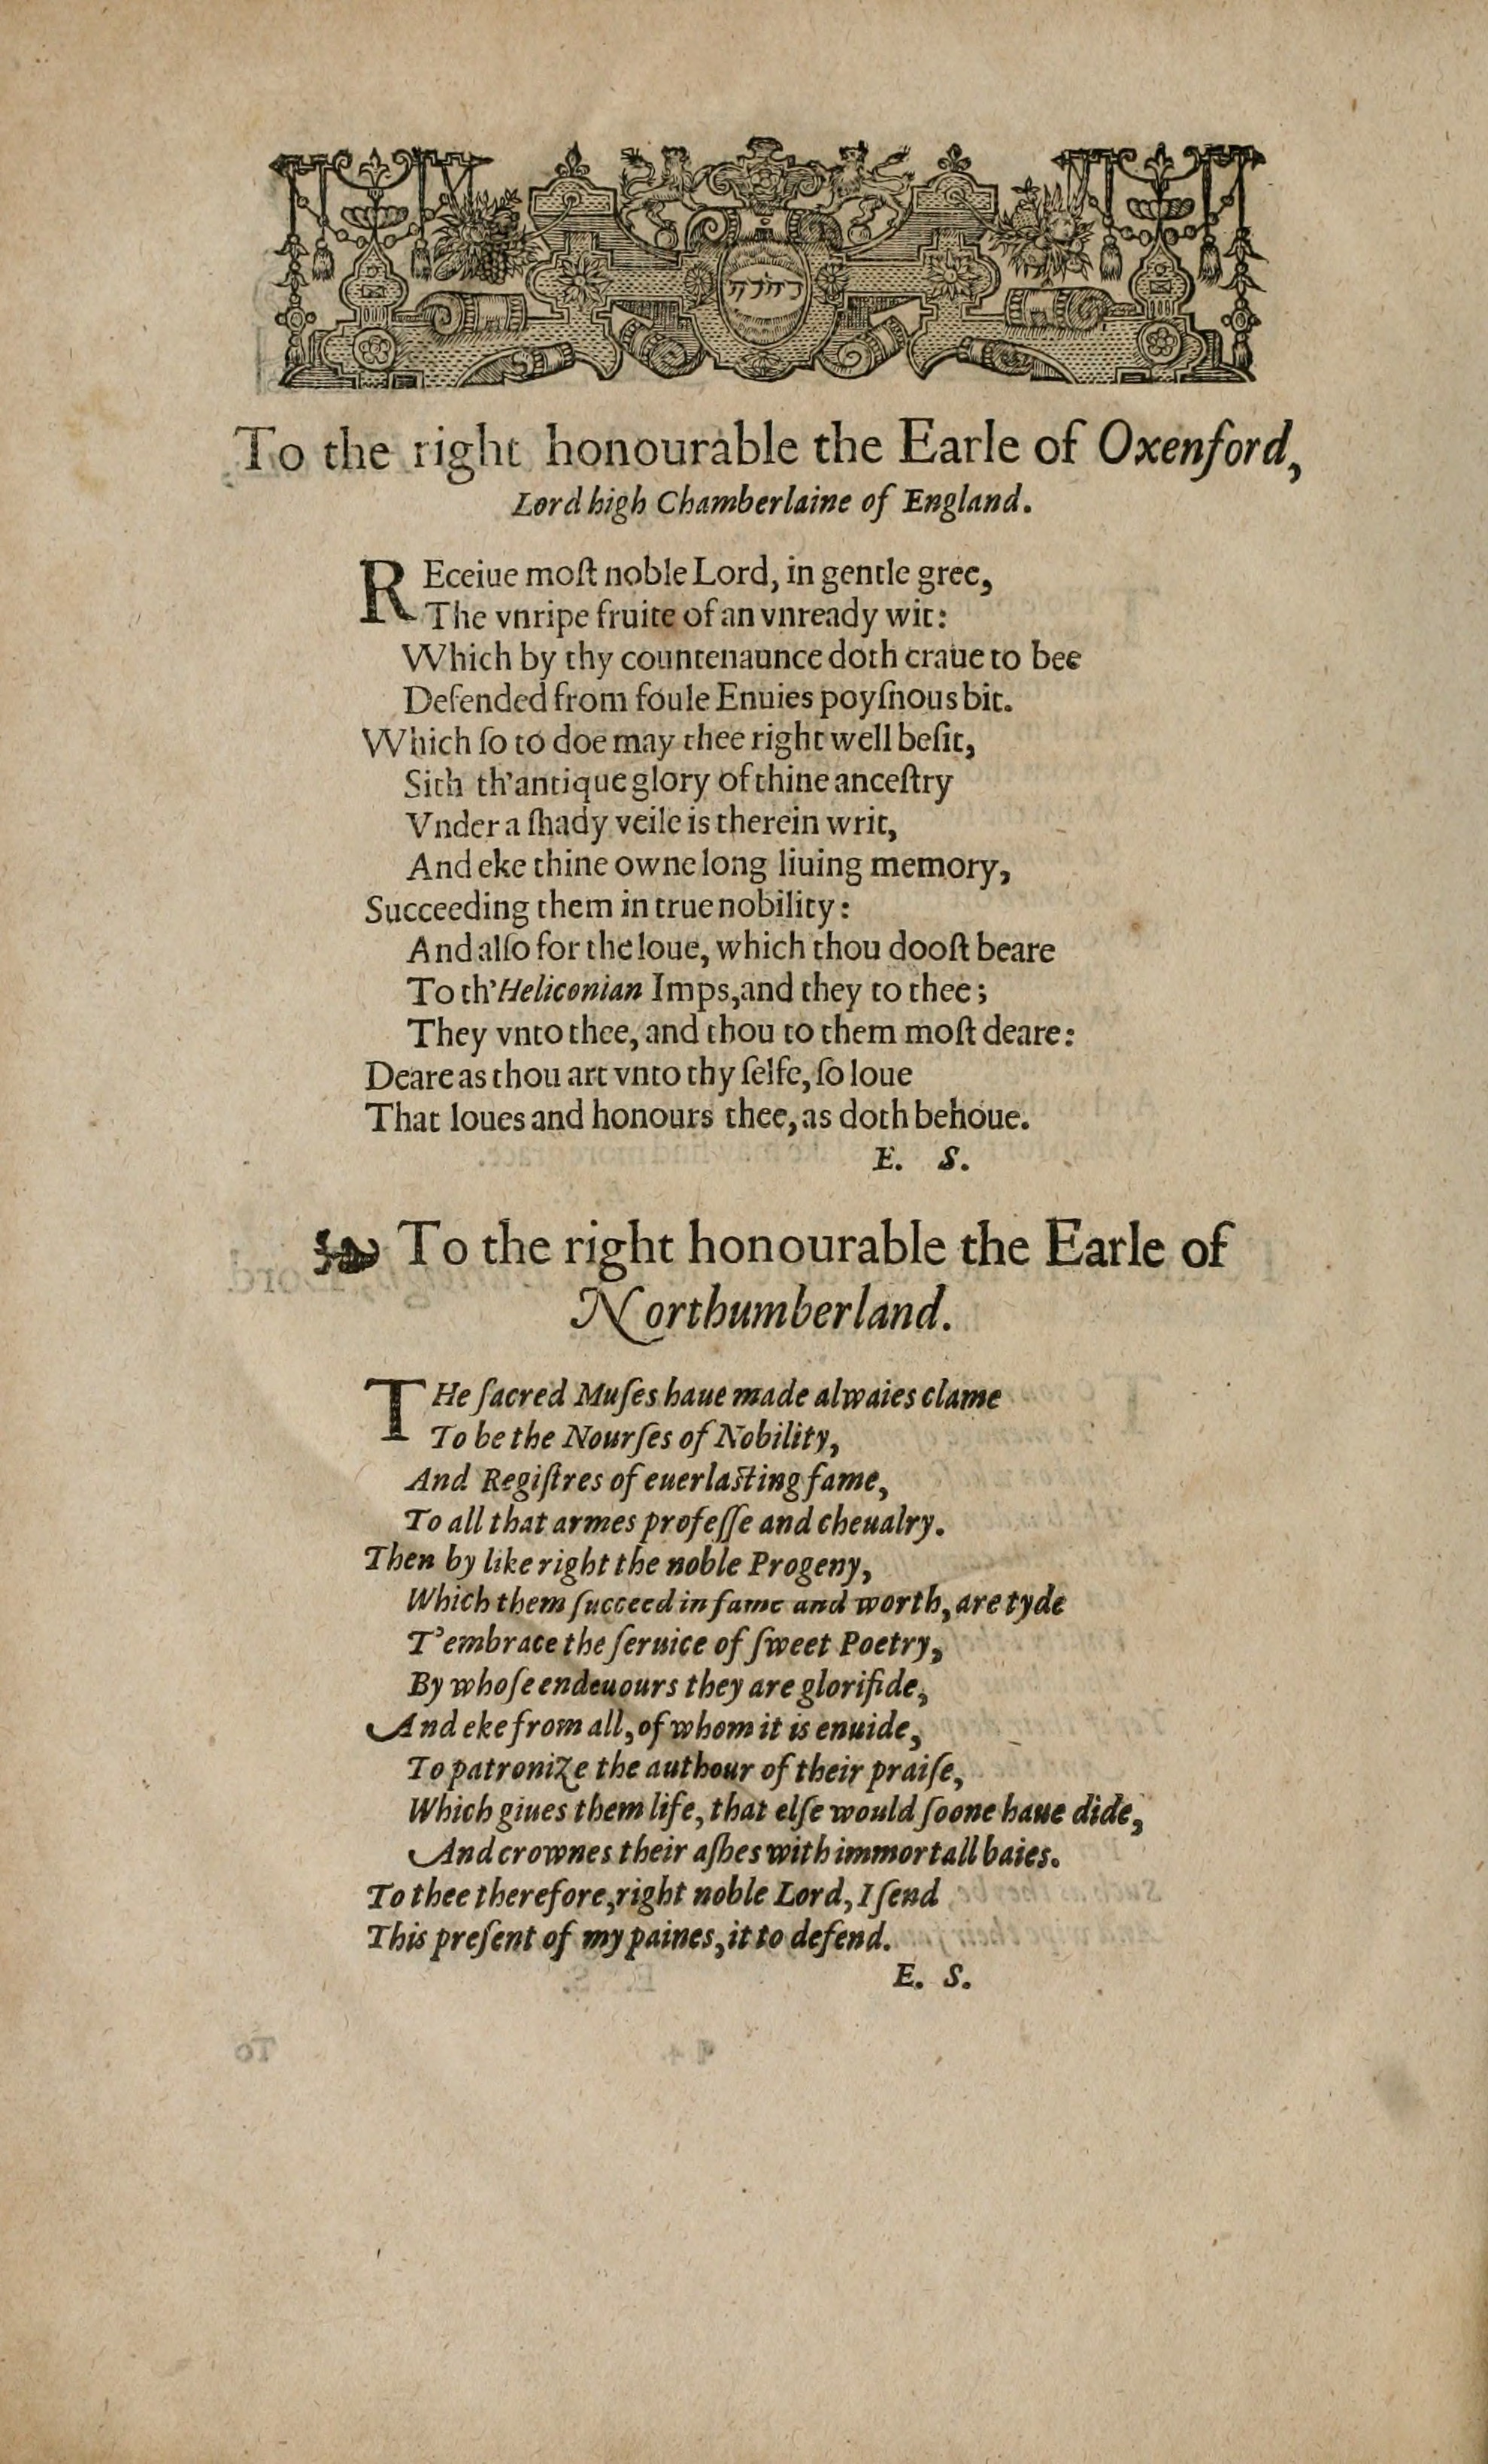 To the right honourable the Earle of Oxenford,
Lord high Chamberlaine of England.
REceiue moſt noble Lord, in gentle gree,
The vnripe fruite of an vnready wit:
Which by thy countenaunce doth craue to bee
Defended from foule Enuies poyſnous bit.
Which ſo to doe may thee right well beſit,
Sith th'antique glory of thine anceſtry
Vnder a ſhady veile is therein writ,
And eke thine owne long liuing memory,
Succeeding them in true nobility:
And alſo for the loue, which thou dooſt beare
To th'Heliconian Imps, and they to thee;
They vnto thee, and thou to them moſt deare:
Deare as thou art vnto thy ſelfe, ſo loue
That loues and honours thee, as doth behoue.
E. S.
To the right honourable the Earle of
Northumberland.
THe ſacred Muſes haue made alwaies clame
To be the Nourſes of Nobility,
And Regiſtres of euerlaſting fame,
To all that armes profeſſe and cheualry.
Then by like right the noble Progeny,
Which them ſucceed in fame and worth, are tyde
T'embrace the ſeruice of ſweet Poetry,
By whoſe endeuours they are glorifide,
And eke from all, of whom it is enuide,
To patronize the authour of their praiſe,
Which giues them life, that elſe would ſoone haue dide,
And crownes their aſhes with immortall baies.
To thee therefore, right noble Lord, I ſend
This preſent of my paines, it to defend.
E. S.